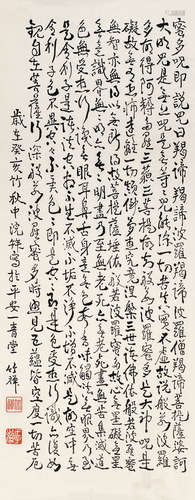 觀自在菩薩行深般若波羅密多時照見五蘊皆空度一切苦厄
舍利子色不異空空不異色色即是空空即是色受想行識亦復如
是舍利子是諸法空相不生不滅不垢不淨不增不減是故空中無色無
受想行識無眼耳鼻舌身意無色聲香味觸法無眼界乃至
無意識界無無明亦無無明盡乃至無老死亦無老死盡無苦集滅道
無智亦無得以無所得故菩提薩埵依般若波羅密多故心無罣礙無罣
礙故無有恐怖遠離一切顛倒夢想究竟涅槃三世諸佛依般若波羅密
多故得阿耨多羅三藐三菩提故知般若波羅密多是大神呪是
大明呪是無上呪是無等等呪能除一切苦真實不虛故說般若波羅
密多呪即說呪曰羯諦羯諦波羅羯諦波羅僧羯諦菩提薩婆訶
歲在癸亥竹秋中浣寫於平安一壽堂 竹禪